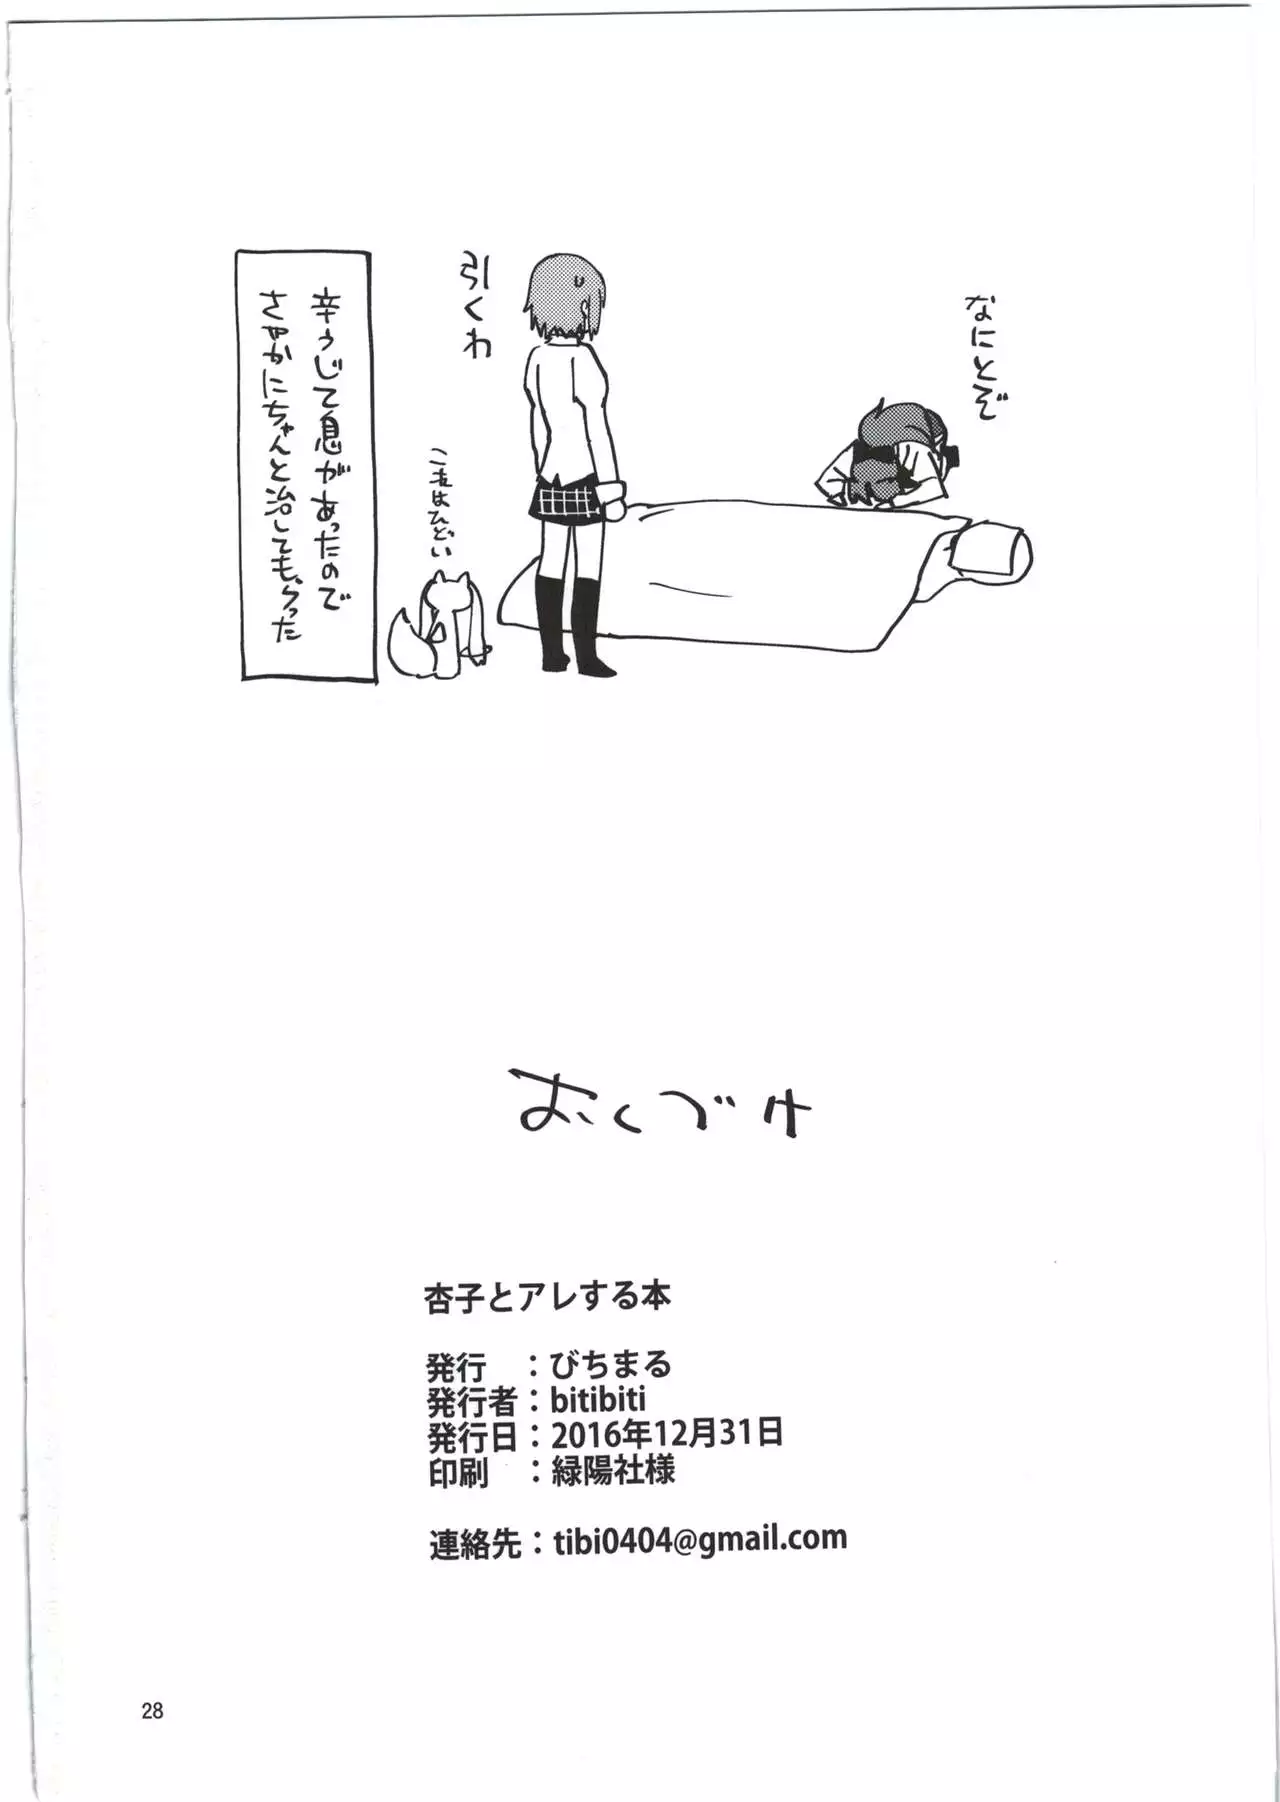 なにとぞ
引くわ
これはひどい
辛うじて息があったので
さやかにちゃんと治してもらった
おくづけ
杏子とアレする本
発行　：びちまる
発行者：bitibiti
発行日：2016年12月31日
印刷　：緑陽社様
連絡先：tibi0404@gmail.com
28